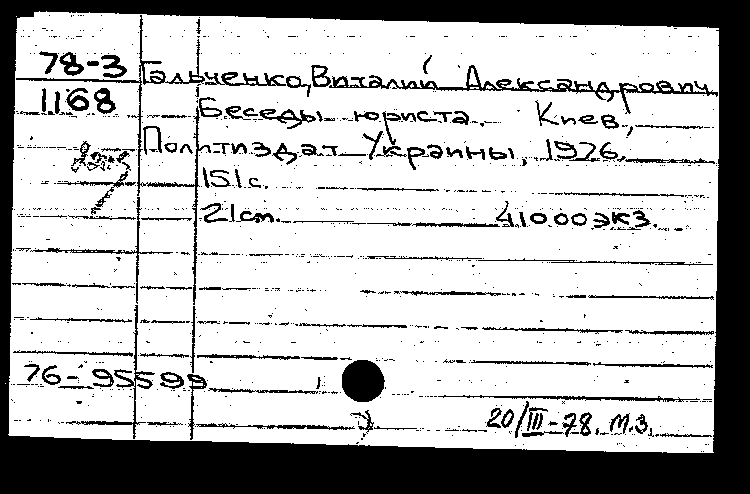 78-3 Гальченко, Виталий Александрович.
1168 Беседы юриста. Киев,
Политиздат Украины, 1976.
151 с.
21 см. 41000 экз.
76-95599
20/III-78. М.З.